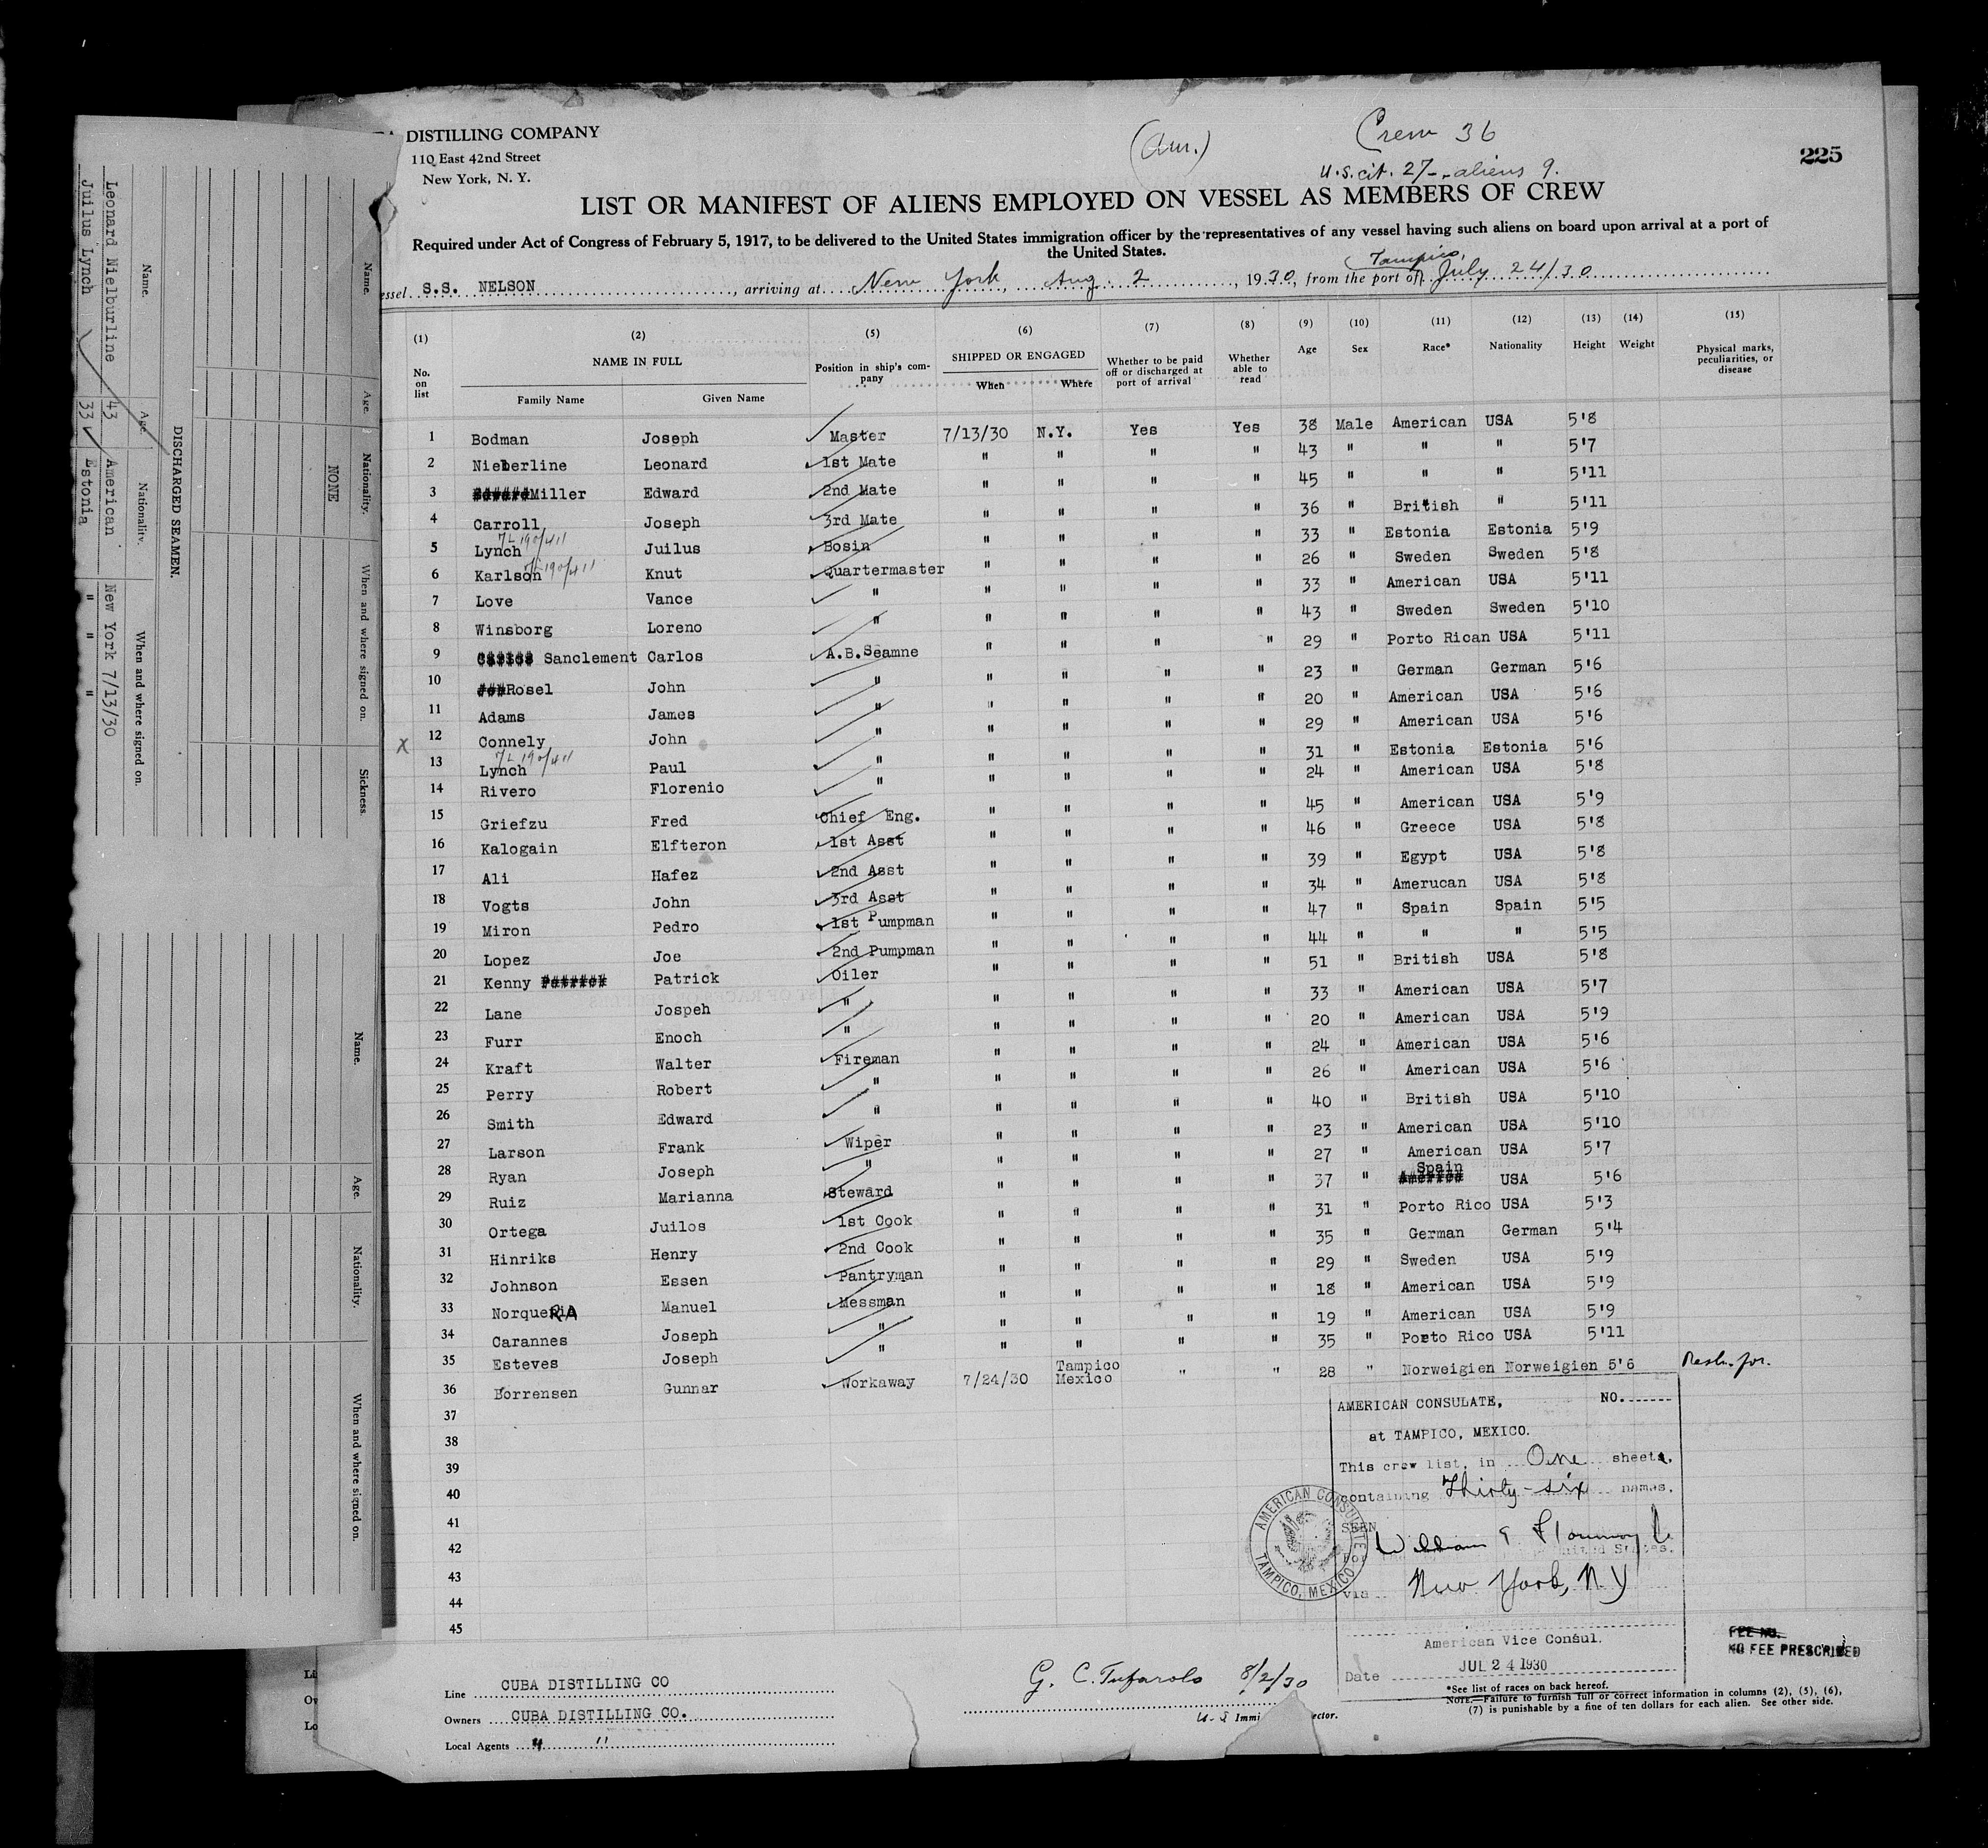 DISTILLING COMPANY
110 East 42nd Street
New York, N. Y.
(Am.)
Crew 36
U.S. cit. 27 - aliens 9.
225
LIST OR MANIFEST OF ALIENS EMPLOYED ON VESSEL AS MEMBERS OF CREW
Required under Act of Congress of February 5, 1917, to be delivered to the United States immigration officer by the representatives of any vessel having such aliens on board upon arrival at a port of
the United States.
essel S.S. NELSON, arriving at New York, Aug. 2, 1930, from the port of Tampico, July 24/30
(1) (2) (5) (6) (7) (8) (9) (10) (11) (12) (13) (14) (15)
No. on list NAME IN FULL Position in ship's company SHIPPED OR ENGAGED Whether to be paid off or discharged at port of arrival Whether able to read Age Sex Race* Nationality Height Weight Physical marks, peculiarities, or disease
Family Name Given Name When Where
1 Bodman Joseph Master 7/13/30 N.Y. Yes Yes 38 Male American USA 5'8
2 Nieberline Leonard 1st Mate " " " " 43 " " " 5'7
3 Miller Edward 2nd Mate " " " " 45 " " " 5'11
4 Carroll Joseph 3rd Mate " " " " 36 " British " 5'11
5 Lynch Juilus Bosin " " " " 33 " Estonia Estonia 5'9
6 Karlson Knut Quartermaster " " " " 26 " Sweden Sweden 5'8
7 Love Vance " " " " " 33 " American USA 5'11
8 Winsborg Loreno " " " " " 43 " Sweden Sweden 5'10
9 Sanclement Carlos A.B.Seamne " " " " 29 " Porto Rican USA 5'11
10 Rosel John " " " " " 23 " German German 5'6
11 Adams James " " " " " 20 " American USA 5'6
X 12 Connely John " " " " " 29 " American USA 5'6
13 Lynch Paul " " " " " 31 " Estonia Estonia 5'6
14 Rivero Florenio " " " " " 24 " American USA 5'8
15 Griefzu Fred Chief Eng. " " " " 45 " American USA 5'9
16 Kalogain Elfteron 1st Asst " " " " 46 " Greece USA 5'8
17 Ali Hafez 2nd Asst " " " " 39 " Egypt USA 5'8
18 Vogts John 3rd Asst " " " " 34 " Amerucan USA 5'8
19 Miron Pedro 1st Pumpman " " " " 47 " Spain Spain 5'5
20 Lopez Joe 2nd Pumpman " " " " 44 " " " 5'5
21 Kenny Patrick Oiler " " " " 51 " British USA 5'8
22 Lane Jospeh " " " " " 33 " American USA 5'7
23 Furr Enoch " " " " " 20 " American USA 5'9
24 Kraft Walter Fireman " " " " 24 " American USA 5'6
25 Perry Robert " " " " " 26 " American USA 5'6
26 Smith Edward " " " " " 40 " British USA 5'10
27 Larson Frank Wiper " " " " 23 " American USA 5'10
28 Ryan Joseph " " " " " 27 " American USA 5'7
29 Ruiz Marianna Steward " " " " 37 " Spain USA 5'6
30 Ortega Juilos 1st Cook " " " " 31 " Porto Rico USA 5'3
31 Hinriks Henry 2nd Cook " " " " 35 " German German 5'4
32 Johnson Essen Pantryman " " " " 29 " Sweden USA 5'9
33 NorqueRA Manuel Messman " " " " 18 " American USA 5'9
34 Carannes Joseph " " " " " 19 " American USA 5'9
35 Esteves Joseph " " " " " 35 " Porto Rico USA 5'11
36 Borrensen Gunnar Workaway 7/24/30 Tampico Mexico " " 28 " Norweigien Norweigien 5'6
37
38
39
40
41
42
43
44
45
AMERICAN CONSULATE, NO.
at TAMPICO, MEXICO.
This crew list, in One sheet,
containing Thirty-six names.
SEEN
For United States.
via New York, N.Y
American Vice Consul.
Date JUL 24 1930
AMERICAN CONSULATE
TAMPICO, MEXICO
FEE NO.
NO FEE PRESCRIBED
Line CUBA DISTILLING CO
Owners CUBA DISTILLING CO.
Local Agents " "
G. C. Tufarolo 8/2/30
*See list of races on back hereof.
NOTE.—Failure to furnish full or correct information in columns (2), (5), (6),
(7) is punishable by a fine of ten dollars for each alien. See other side.
Name. Age. Nationality. When and where signed on. Sickness.
NONE
DISCHARGED SEAMEN.
Name. Age. Nationality. When and where signed on.
Leonard Nielburline 43 American New York 7/13/30
Juilus Lynch 33 Estonia " " "
Name. Age. Nationality. When and where signed on.